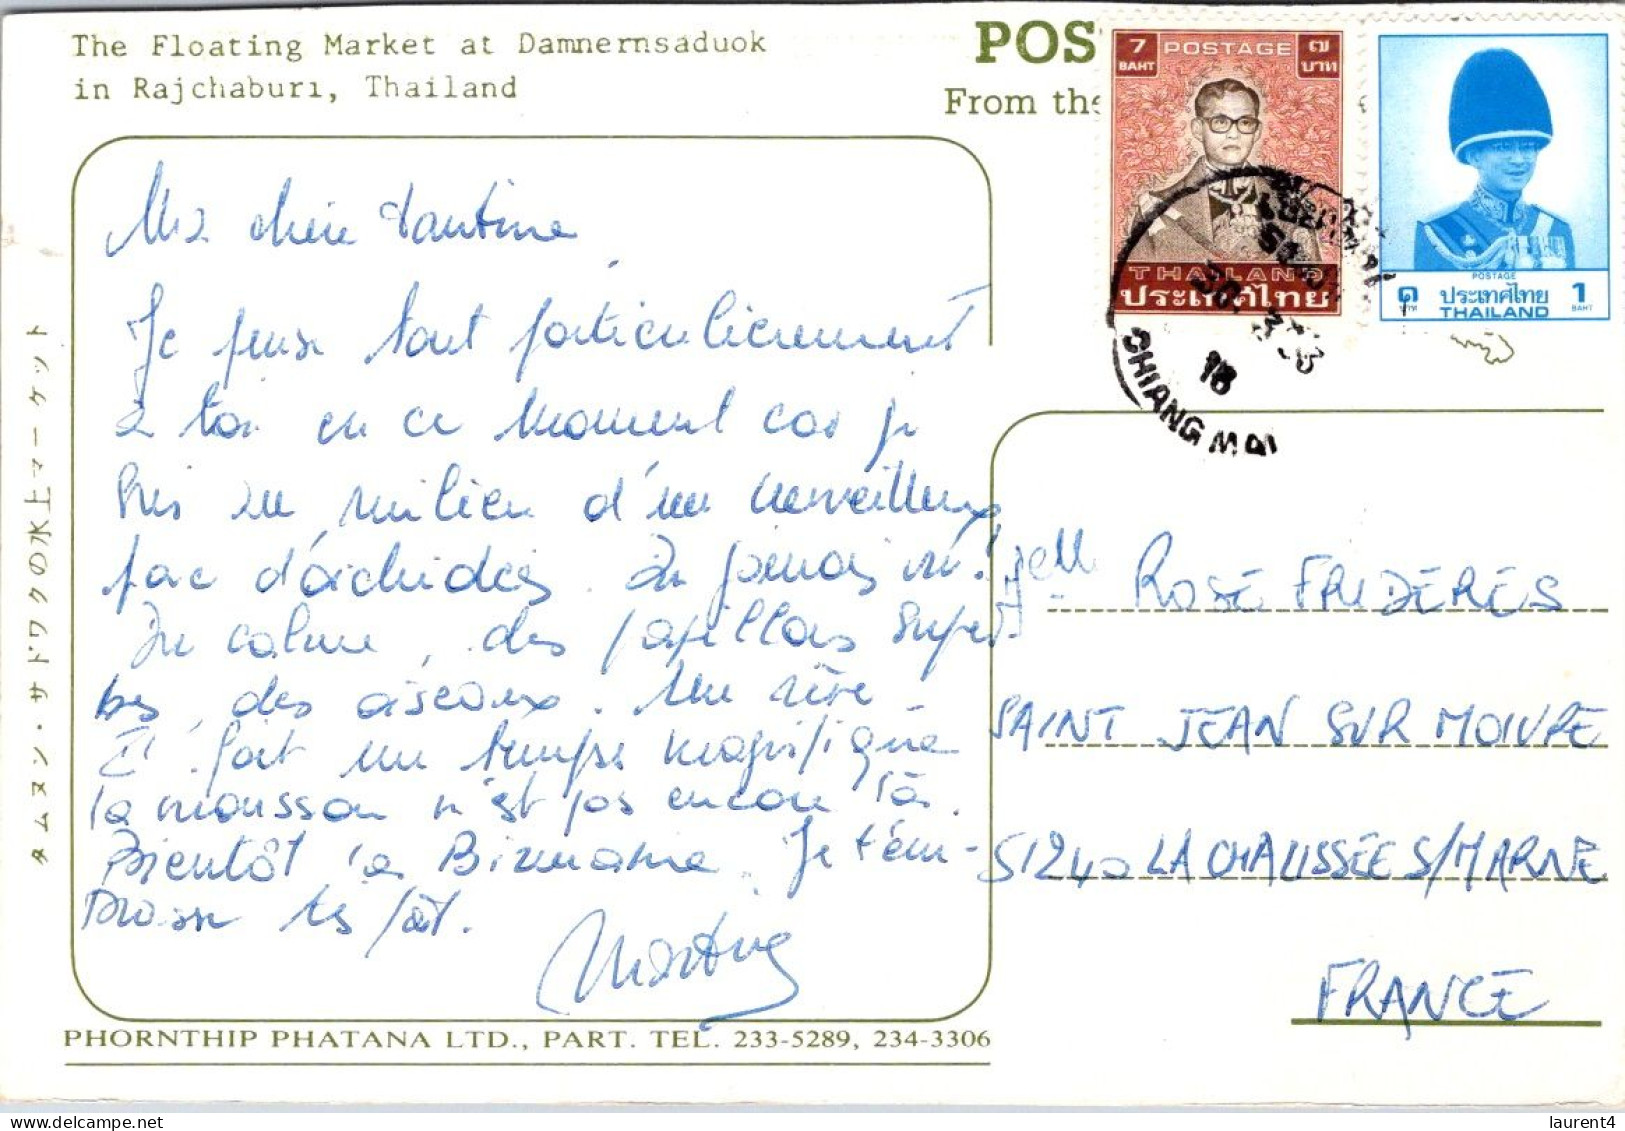 The Floating Market at Damnernsaduok
in Rajchaburi, Thailand
POS
From the
7 POSTAGE ๗
BAHT บาท
THAILAND
ประเทศไทย
POSTAGE
๑ ประเทศไทย 1
บาท THAILAND BAHT
18
CHIANG MAI
タムヌン・サドワクの水上マーケット
Ma chère tantine
Je pense tout particulièrement
à toi en ce moment car je
suis au milieu d'un merveilleux
parc d'orchidées. Du jamais vu!
Du calme, des papillons super
bes, des oiseaux. Un rêve
Il fait un temps magnifique
la mousson n'est pas encore là.
Bientôt la Birmanie. Je t'em-
brasse très fort.
Martine
Melle ROSE
SAINT JEAN SUR MOIVRE
51240 LA CHAUSSÉE S/MARNE
FRANCE
PHORNTHIP PHATANA LTD., PART. TEL. 233-5289, 234-3306
laurent4